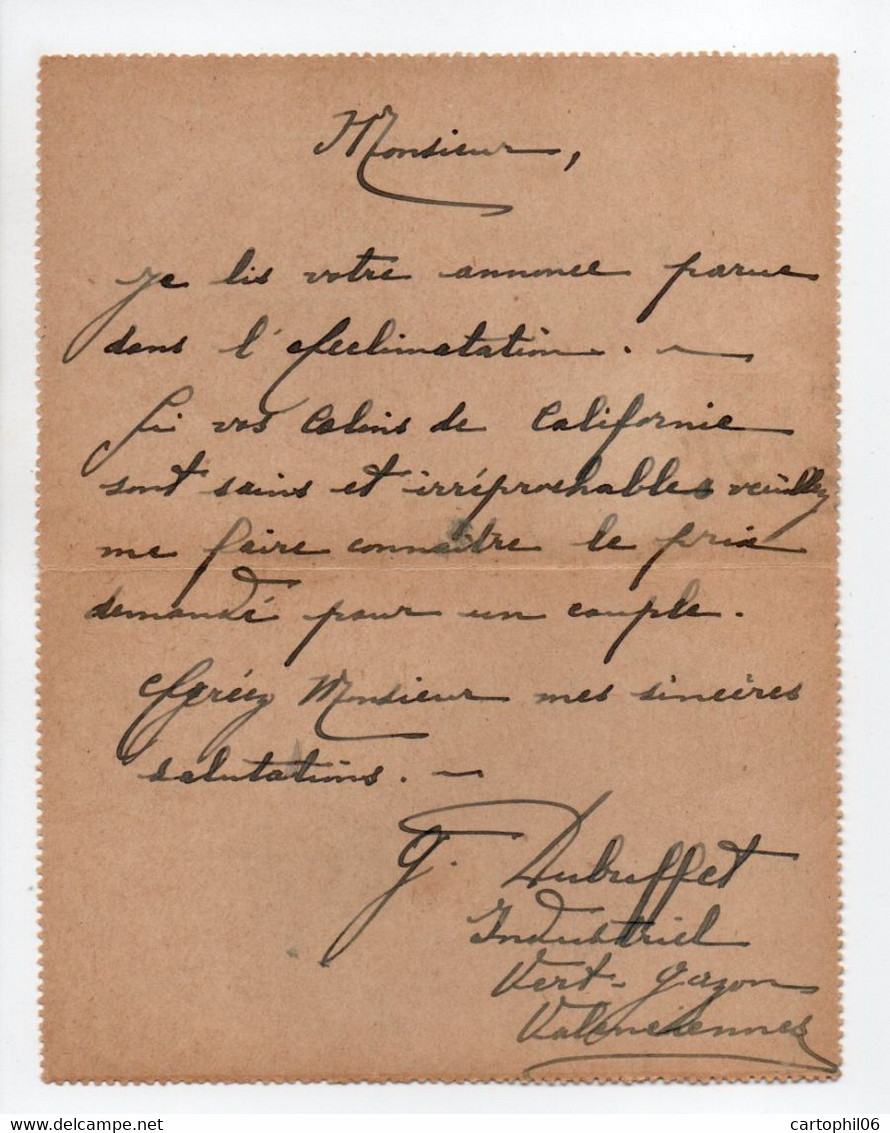 Monsieur,
Je lis votre annonce parue
dans l'Acclimatation. —
Si vos Colins de Californie
sont sains et irréprochables veuillez
me faire connaître le prix
demandé pour un couple.
Agréez Monsieur mes sincères
salutations. —
G. Dubuffet
Industriel
Vert-Gazon
Valenciennes
cartophil06